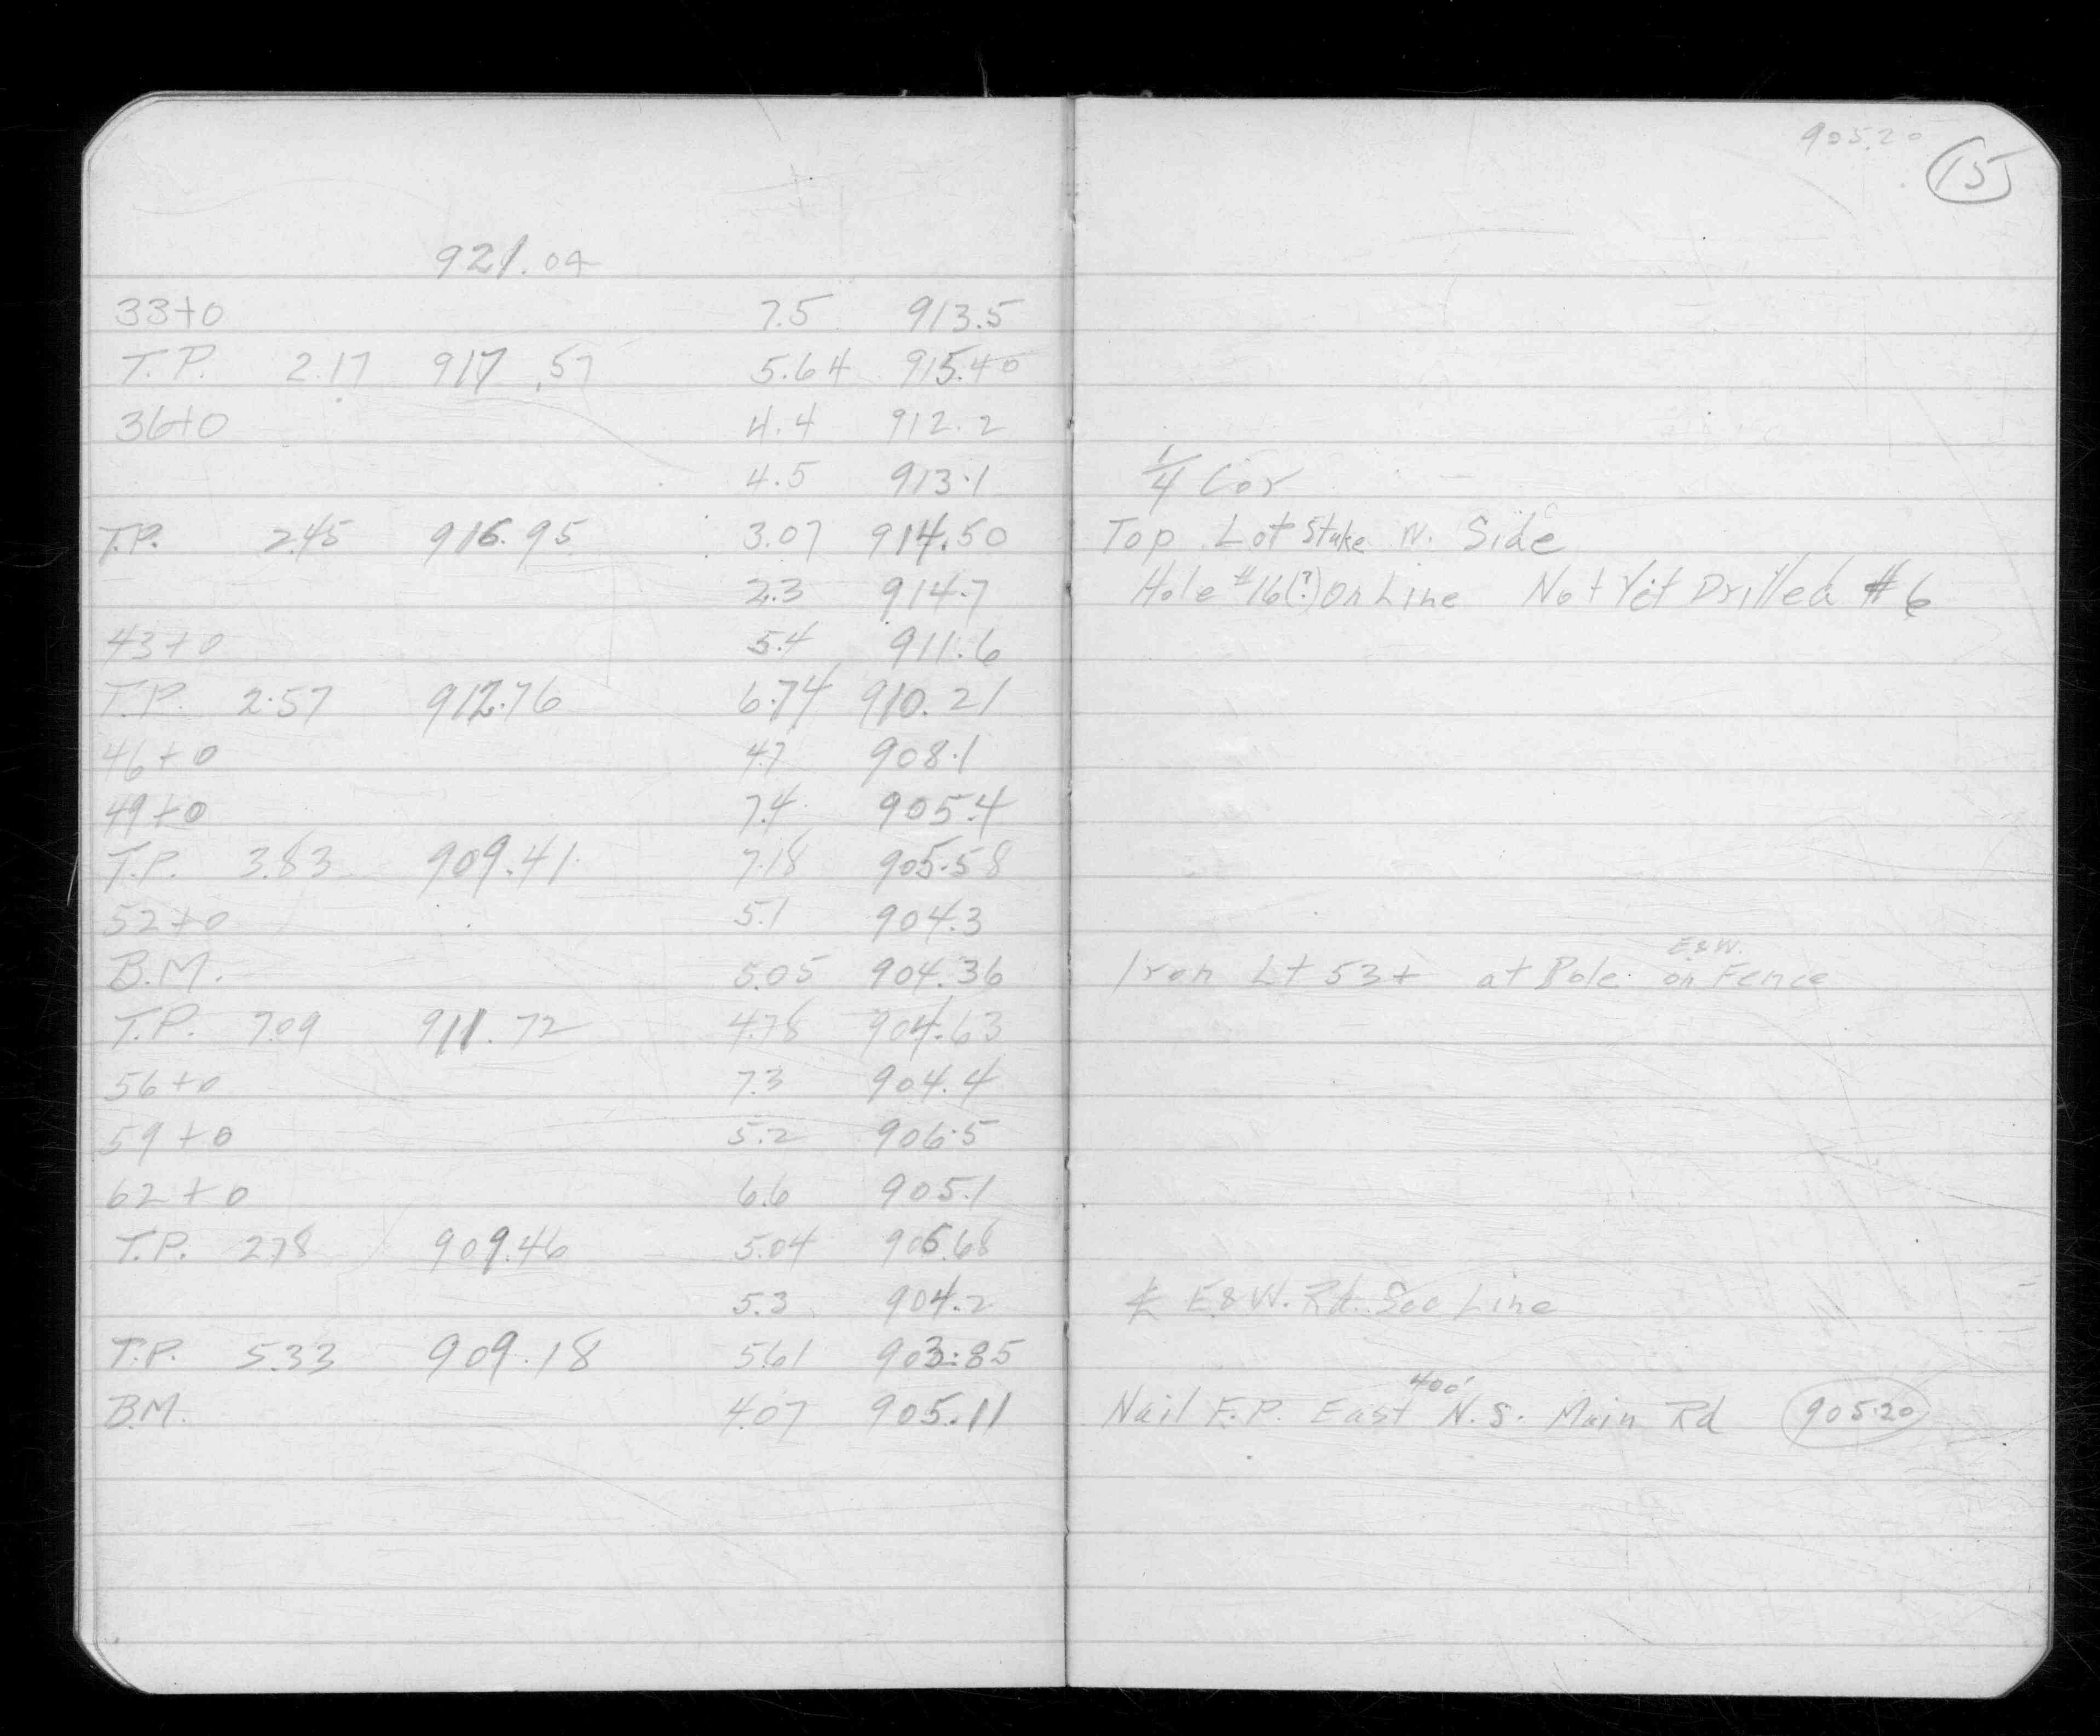 905.20
15
921.04
33+0 7.5 913.5
T.P. 2.17 917.57 5.64 915.40
36+0 4.4 912.2
4.5 913.1 1/4 Cor
T.P. 2.45 916.95 3.07 914.50 Top Lot Stake N. Side
2.3 914.7 Hole #16(?) On Line Not Yet Drilled #6
43+0 5.4 911.6
T.P. 2.57 912.76 6.74 910.21
46+0 4.7 908.1
49+0 7.4 905.4
T.P. 3.83 909.41 7.18 905.58
52+0 5.1 904.3
E&W.
B.M. 5.05 904.36 Iron Lt 53+ at Pole on Fence
T.P. 7.09 911.72 4.78 904.63
56+0 7.3 904.4
59+0 5.2 906.5
62+0 6.6 905.1
T.P. 2.78 909.46 5.04 906.68
5.3 904.2 ℄ E&W. Rd. Sec Line
T.P. 5.33 909.18 5.61 903.85
400'
B.M. 4.07 905.11 Nail F.P. East N.S. Main Rd 905.20